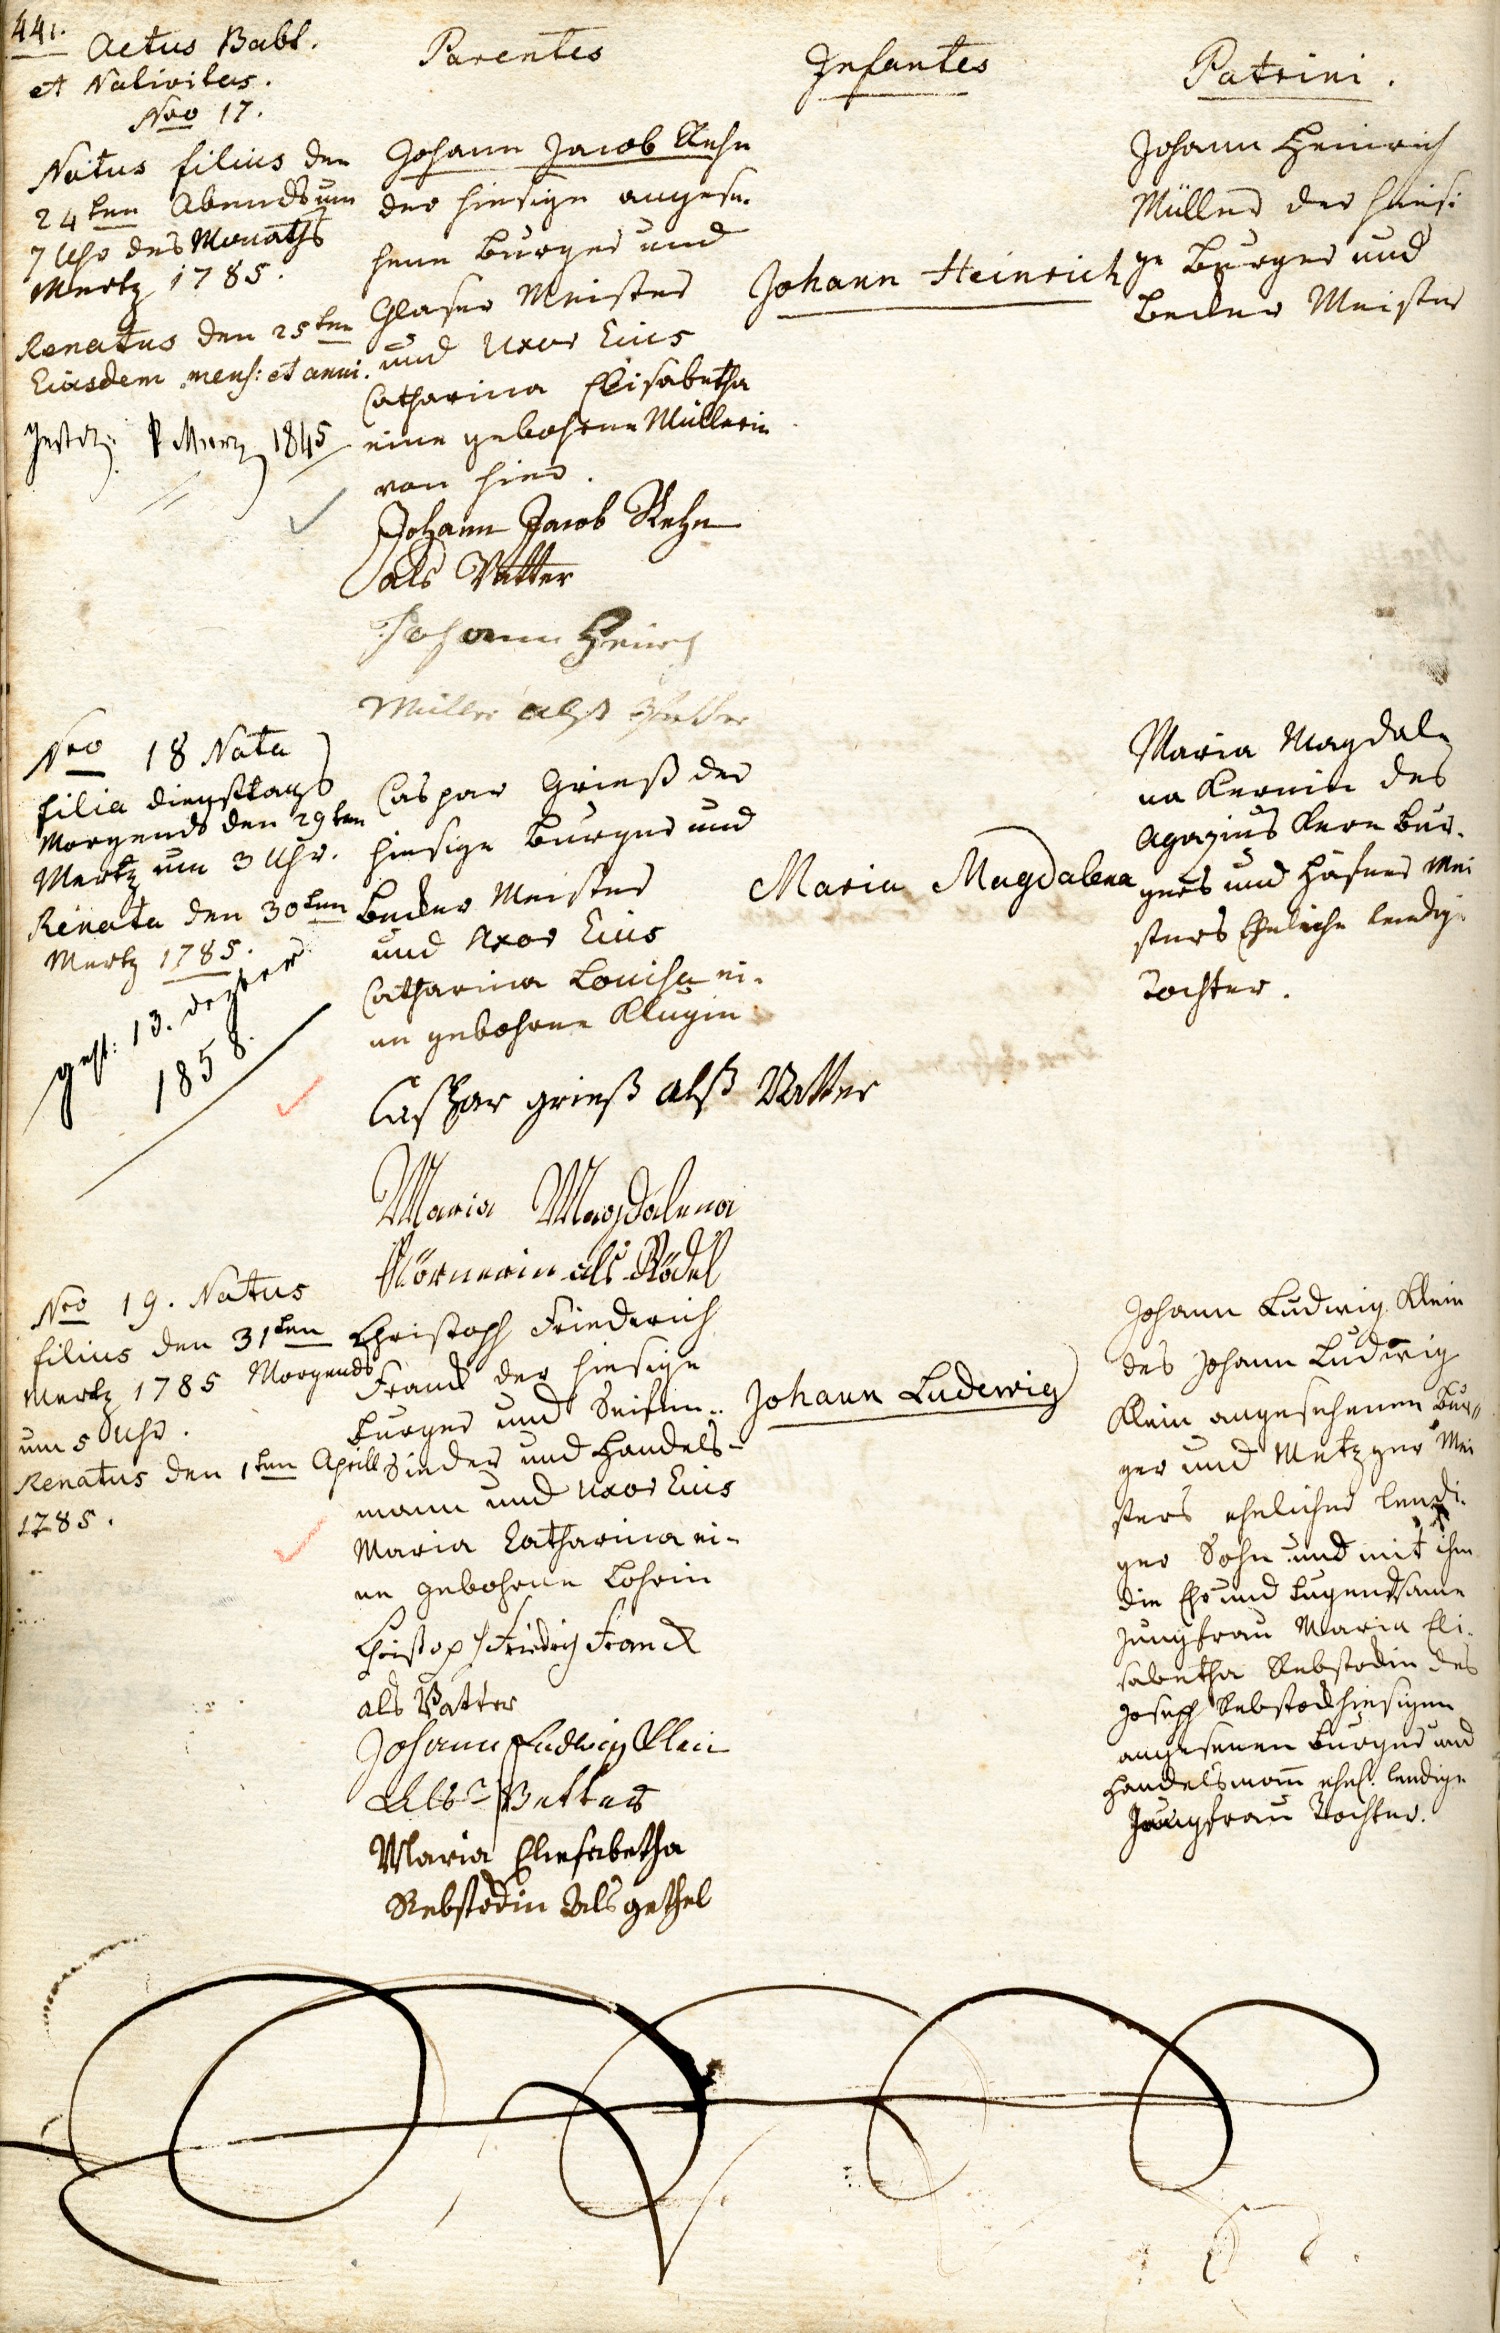 441.
Actus Babt.
et Nativitas.
Parentes
Infantes
Patrini.
Nro 17.
Natus filius den
24ten Abends um
7 Uhr des Monaths
Mertz 1785.
Renatus den 25ten
Eiusdem mens: et anni.
1845
Johann Jacob Rehn
der hiesige angese-
hene Burger und
Glaser Meister
und Uxor Eius
Catharina Elisabetha
eine gebohrne Müllerin
von hier.
Johann Jacob Rehn
als Vatter
Johann Heinrich
Müller alß Pfetter
Johann Heinrich
Johann Heinrich
Müller der hiesi:
ge Burger und
Becker Meister
Nro 18 Nata
filia dienstags
Morgends den 29ten
Mertz um 3 Uhr.
Renata den 30ten
Mertz 1785.
gest: 13. dezber
1858.
Caspar Grieß der
hiesige Burger und
Becker Meister
und Uxor Eius
Catharina Louisa ei-
ne gebohrne Klugin
Caspar grieß alß Vatter
Maria Magdalena
Körnerin als Gödel
Maria Magdalena
Maria Magdale
na Kernin des
Agazius Kern Bur-
gers und Häfner Mei
sters Eheliche ledig
Tochter.
Nro 19. Natus
filius den 31ten
Mertz 1785 Morgends
um 5 Uhr.
Renatus den 1ten Aprill
1785.
Christoph Friederich
Franck der hiesige
Burger und Seifen-
Sieder und Handels-
mann und Uxor Eius
Maria Catharina ei-
ne gebohrne Lohrin
Christoph Friedrich Franck
als Vatter
Johann Ludwig Klein
Als Petter
Maria Eliesabetha
Rebstockin Als gethel
Johann Ludewig
Johann Ludwig Klein
des Johann Ludwig
Klein angesehenen Bur-
ger und Metzger Mei
sters ehelicher ledi-
ger Sohn und mit ihm
die Ehr und Tugendsame
Jungfrau Maria Eli-
sabetha Rebstockin des
Joseph Rebstock hiesigen
angesenen Burger und
Handelsmann ehel. ledige
Jungfrau Tochter.